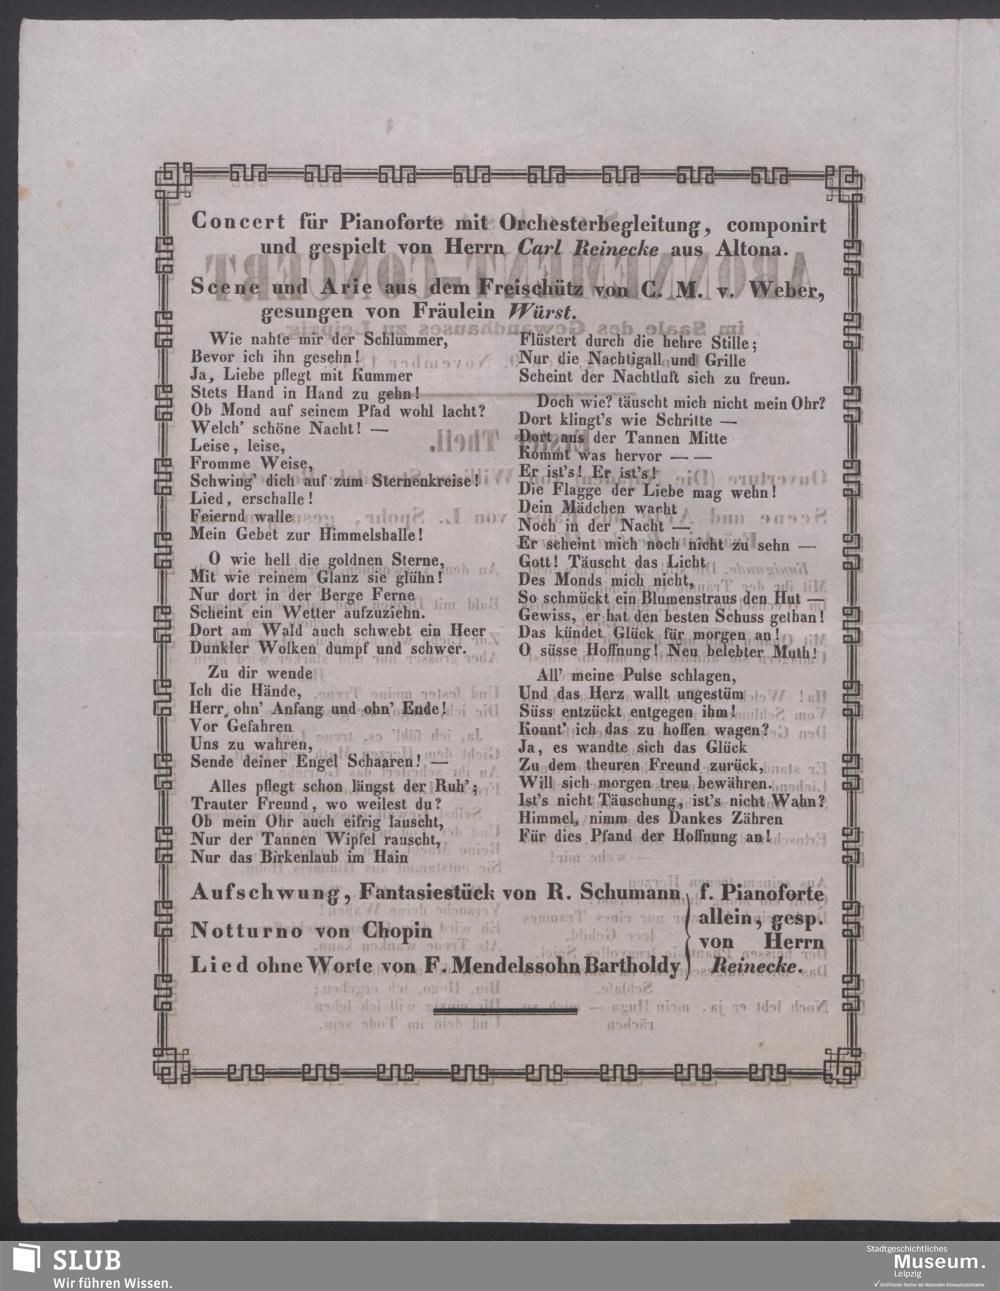 Concert für Pianoforte mit Orchesterbegleitung, componirt
und gespielt von Herrn Carl Reinecke aus Altona.
Scene und Arie aus dem Freischütz von C. M. v. Weber,
gesungen von Fräulein Würst.
Wie nahte mir der Schlummer,
Bevor ich ihn gesehn!
Ja, Liebe pflegt mit Kummer
Stets Hand in Hand zu gehn!
Ob Mond auf seinem Pfad wohl lacht?
Welch' schöne Nacht! —
Leise, leise,
Fromme Weise,
Schwing' dich auf zum Sternenkreise!
Lied, erschalle!
Feiernd walle
Mein Gebet zur Himmelshalle!
O wie hell die goldnen Sterne,
Mit wie reinem Glanz sie glühn!
Nur dort in der Berge Ferne
Scheint ein Wetter aufzuziehn.
Dort am Wald auch schwebt ein Heer
Dunkler Wolken dumpf und schwer.
Zu dir wende
Ich die Hände,
Herr ohn' Anfang und ohn' Ende!
Vor Gefahren
Uns zu wahren,
Sende deiner Engel Schaaren! —
Alles pflegt schon längst der Ruh';
Trauter Freund, wo weilest du?
Ob mein Ohr auch eifrig lauscht,
Nur der Tannen Wipfel rauscht,
Nur das Birkenlaub im Hain
Flüstert durch die hehre Stille;
Nur die Nachtigall und Grille
Scheint der Nachtluft sich zu freun.
Doch wie? täuscht mich nicht mein Ohr?
Dort klingt's wie Schritte —
Dort aus der Tannen Mitte
Kommt was hervor — —
Er ist's! Er ist's!
Die Flagge der Liebe mag wehn!
Dein Mädchen wacht
Noch in der Nacht —
Er scheint mich noch nicht zu sehn —
Gott! Täuscht das Licht
Des Monds mich nicht,
So schmückt ein Blumenstraus den Hut —
Gewiss, er hat den besten Schuss gethan!
Das kündet Glück für morgen an!
O süsse Hoffnung! Neu belebter Muth!
All' meine Pulse schlagen,
Und das Herz wallt ungestüm
Süss entzückt entgegen ihm!
Konnt' ich das zu hoffen wagen?
Ja, es wandte sich das Glück
Zu dem theuren Freund zurück,
Will sich morgen treu bewähren.
Ist's nicht Täuschung, ist's nicht Wahn?
Himmel, nimm des Dankes Zähren
Für dies Pfand der Hoffnung an!
Aufschwung, Fantasiestück von R. Schumann
Notturno von Chopin
Lied ohne Worte von F. Mendelssohn Bartholdy
f. Pianoforte
allein, gesp.
von Herrn
Reinecke.
SLUB
Wir führen Wissen.
Stadtgeschichtliches
Museum.
Leipzig
Zertifizierter Partner der Nationalen Klimaschutzinitiative